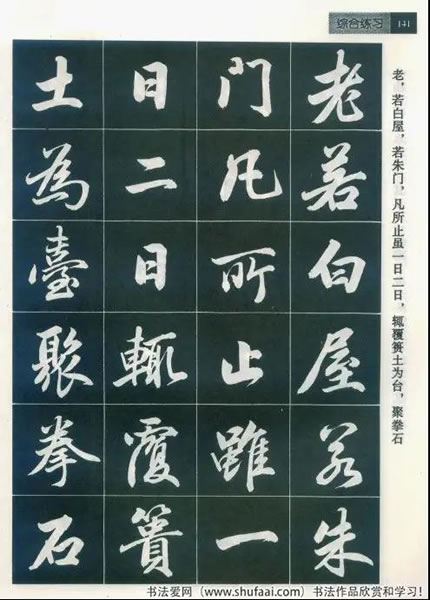 综合练习 141
老若白屋若朱
门凡所止雖一
日二日輒覆簣
土為臺聚拳石
老，若白屋，若朱门，凡所止虽一日二日，辄覆篑土为台，聚拳石
书法爱网（www.shufaai.com）书法作品欣赏和学习！